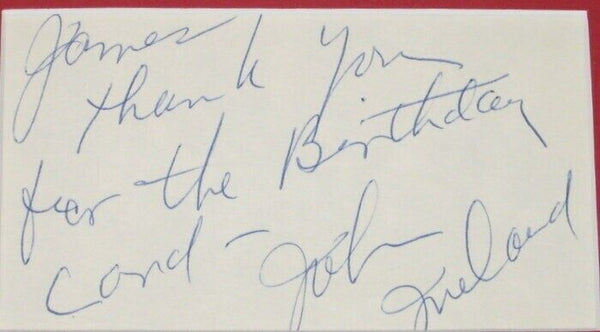 James
thank you
for the Birthday
card - John
Ireland